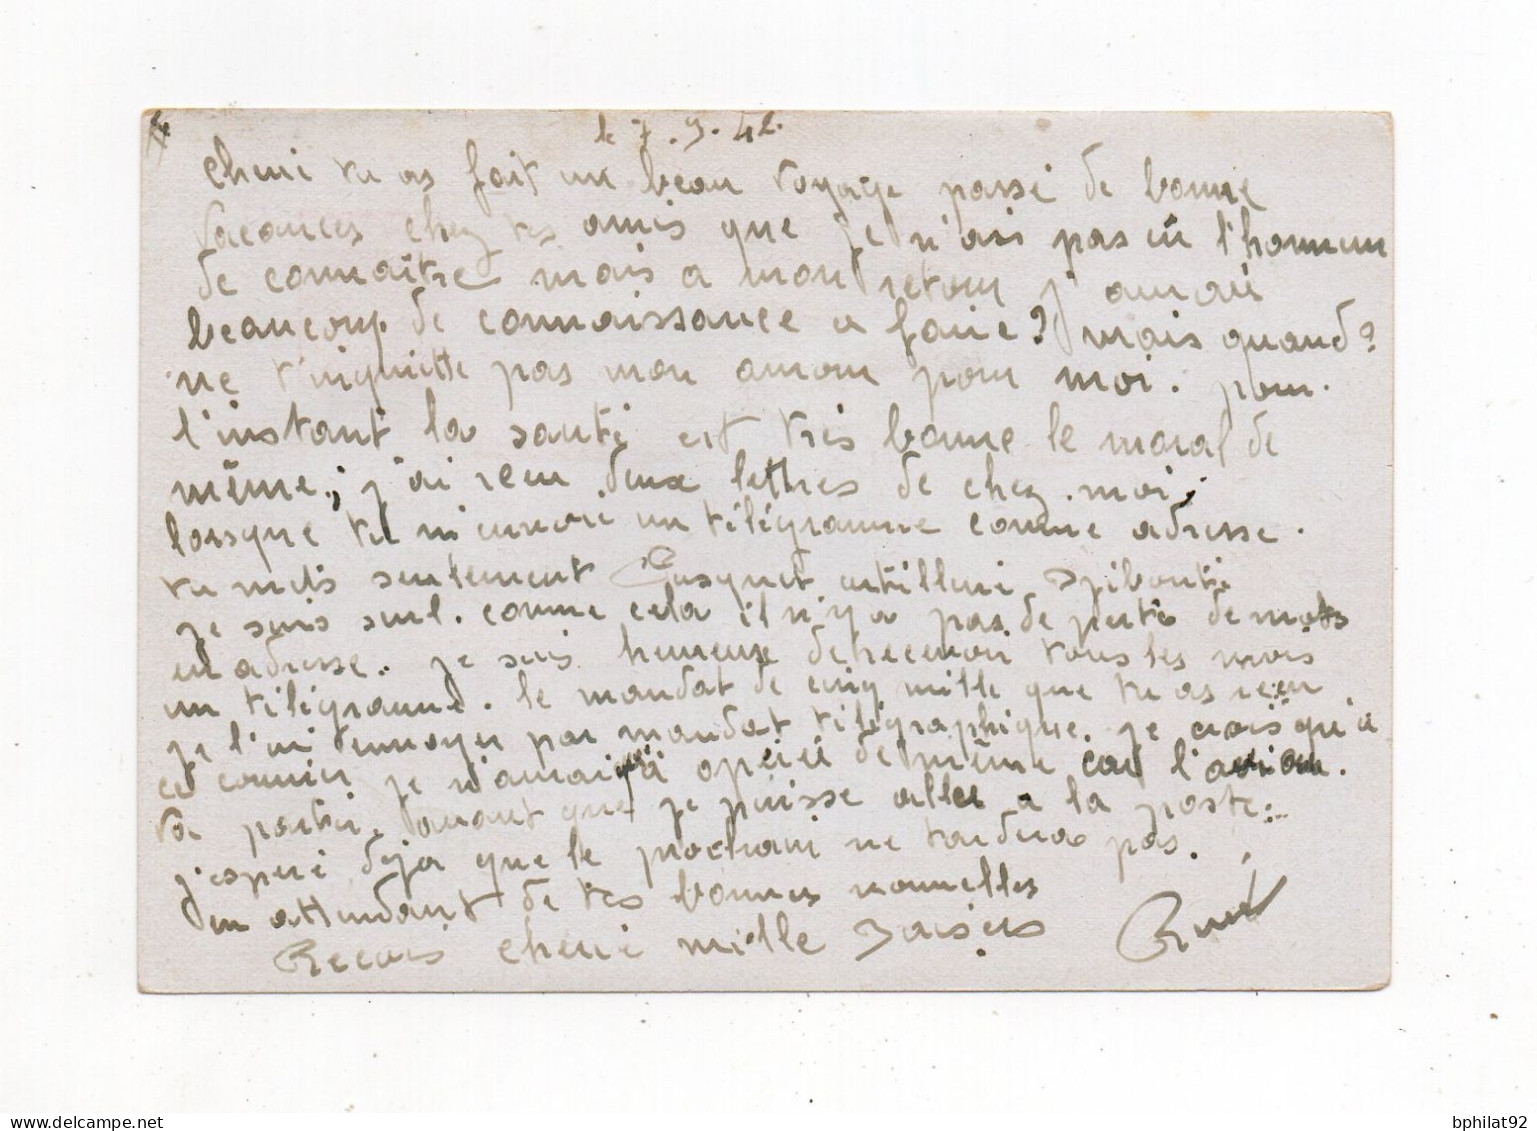 le 7.9.42.
cheri tu as fait un beau voyage passé de bonne
vacances chez tes amis que je n'ais pas eu l'honneur
de connaître mais a mon retour j'aurai
beaucoup de connaissance a faire? mais quand?
ne t'inquiette pas mon amour pour moi. pour.
l'instant la santé est très bonne le moral de
même.; j'ai recu deux lettres de chez.moi;
lorsque tu m'envoie un télégramme comme adresse.
tu mets seulement Gasquet artillerie Djibouti
je suis seul. comme cela il n'y a pas de perte de mots
en adresse. je suis heureux de recevoir tous les mois
un télégramme. le mandat de cinq mille que tu as recu
je l'ai envoyer par mandat télégraphique. je crois qu'a
ce courrier je n'aurai opéré de même car l'avion.
va partir. avant que je puisse aller a la poste..
j'espere deja que le prochain ne tardera pas.
en attendant de tes bonnes nouvelles
Recois cherie mille Baisers
René
bphilat92